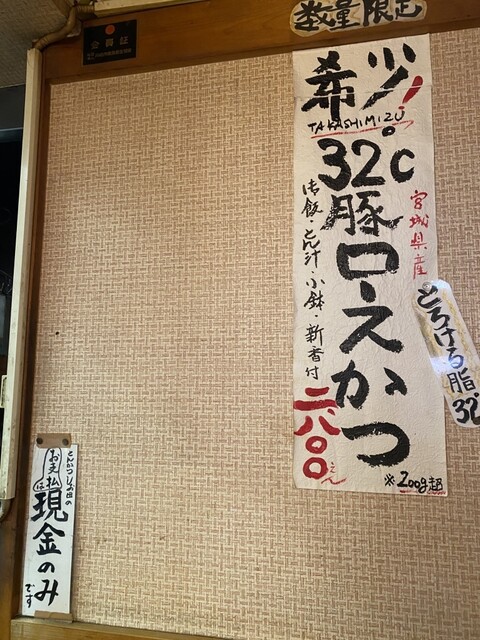 数量限定
希少!。
TAKASHIMIZU
32℃豚ロースかつ
宮城県産
御飯・とん汁・小鉢・新香付
二、八〇〇えん
※200g超
とろける脂32℃
会員証
お支払は
現金のみ
です